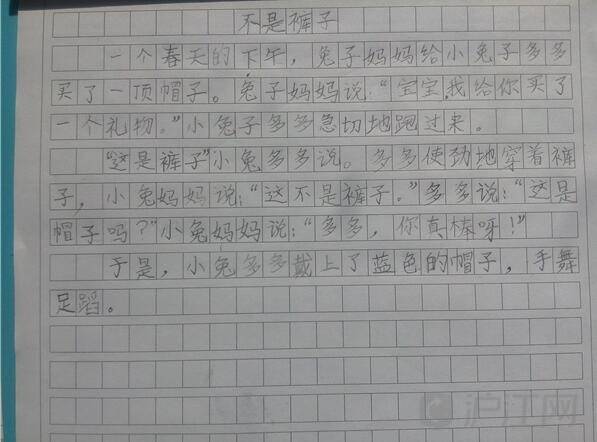 不是裤子
一个春天的下午，兔子妈妈给小兔子多多
买了一顶帽子。兔子妈妈说：“宝宝，我给你买了
一个礼物。”小兔子多多急切地跑过来。
“这是裤子”小兔多多说。多多使劲地穿着裤
子，小兔妈妈说：“这不是裤子。”多多说：“这是
帽子吗？”小兔妈妈说：“多多，你真棒呀！”
于是，小兔多多戴上了蓝色的帽子，手舞
足蹈。
沪江网